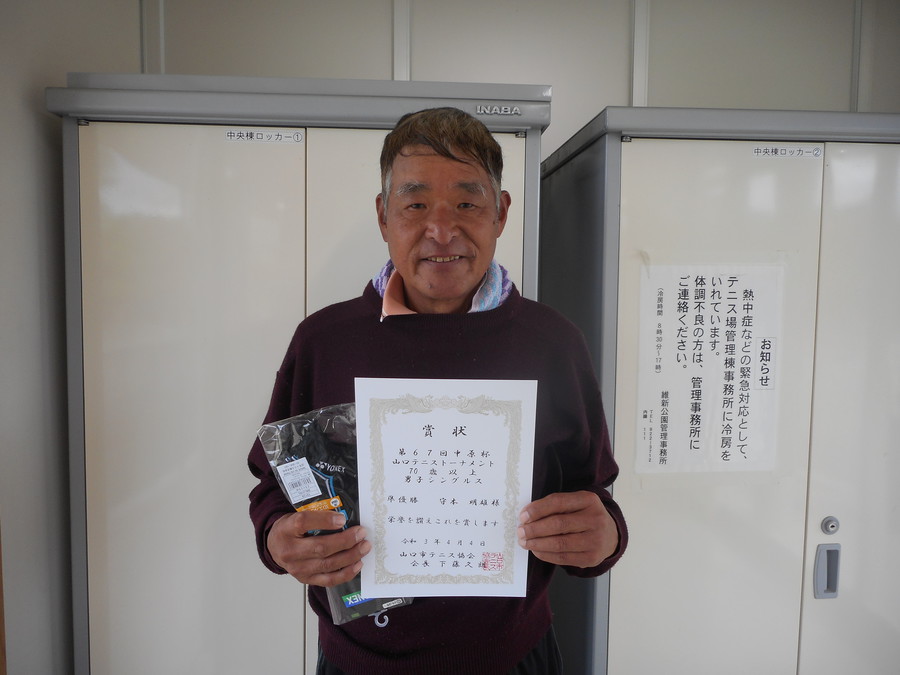 INABA
中央棟ロッカー①
中央棟ロッカー②
お知らせ
熱中症などの緊急対応として、
テニス場管理棟事務所に冷房を
いれています。
体調不良の方は、管理事務所に
ご連絡ください。
(冷房時間 8時30分～17時)
維新公園管理事務所
YONEX
賞状
第67回中原杯
山口テニストーナメント
70歳以上
男子シングルス
準優勝 守本 明雄様
栄誉を讃えこれを賞します
令和3年4月4日
山口市テニス協会
会長 下藤文雄